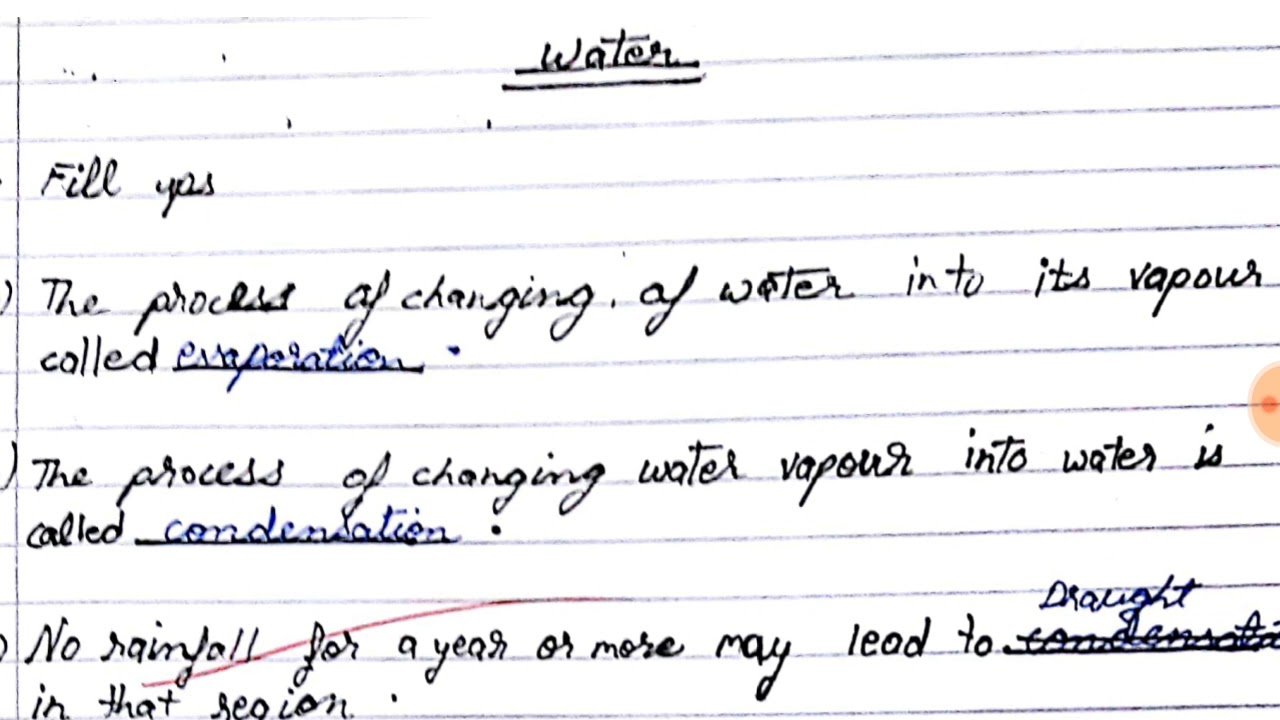 Water
Fill ups
) The process of changing. of water into its vapour
called evaporation.
) The process of changing water vapour into water is
called condensation.
) No rainfall for a year or more may lead to Draught
in that region.